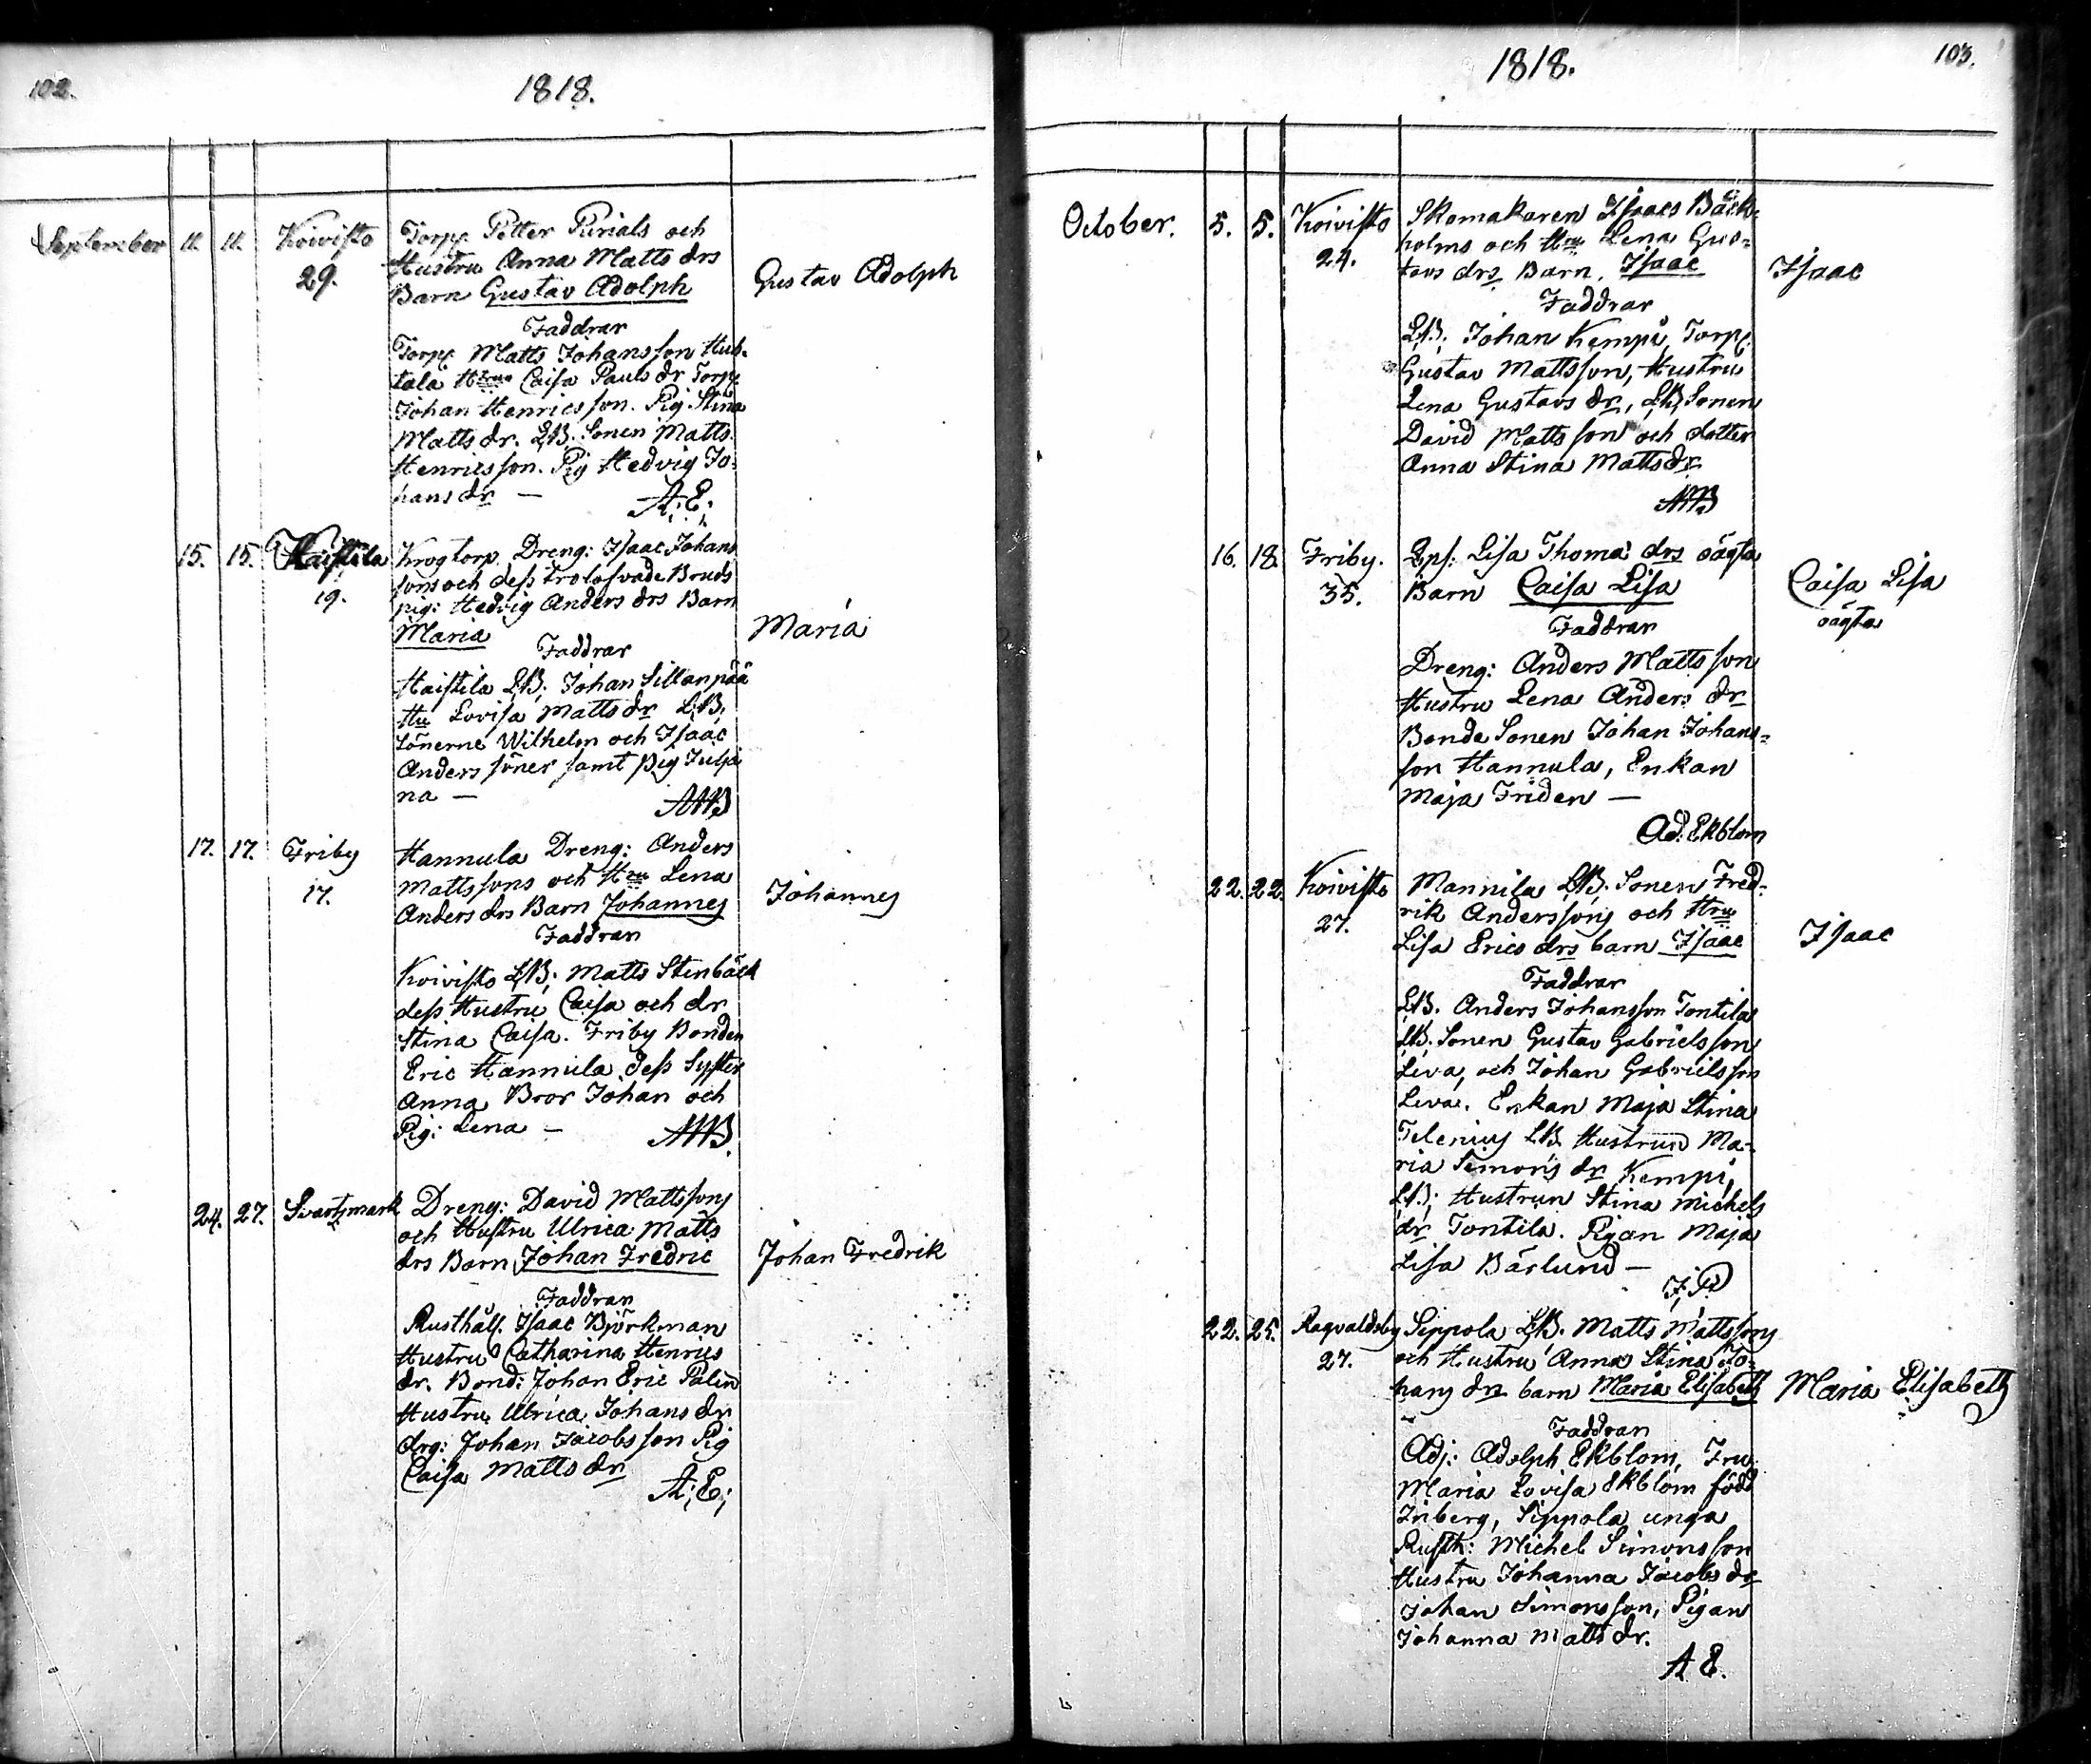 102.
1818.
September 11. 11. Koivisto
29.
Torp. Petter Purials och
Hustru Anna Matts drs
Barn Gustav Adolph
Gustav Adolph
Faddrar
Torp. Matts Johansson Huh-
tala Hru Caisa Pauls dr Torp.
Johan Henricsson. Pig. Stina
Matts dr. LB. Sonen Matts
Henricsson. Pig Hedvig Jo-
hans dr —
A; E;
15. 15. Haistila
19.
Krogtorp. Dreng: Isaac Johans
sons och dess trolofvade Bruds
pig: Hedvig Anders drs Barn
Maria
Maria
Faddrar
Haistila LB; Johan Sillanpää
Hu Lovisa Matts dr LB.
Sönerne Wilhelm och Isaac
Anders söner samt Pig Julia
na —
17. 17. Friby
17.
Hannula Dreng: Anders
Mattssons och Hru Lena
Anders drs Barn Johannes
Johannes
Faddran
Koivisto LB; Matts Stenbäck
dess Hustru Caisa och dr
Stina Caisa. Friby Bonden
Eric Hannula, dess Syster
Anna, Bror Johan och
Pig: Lena —
24. 27. Svartsmark
Dreng: David Mattssons
och Hustru Ulrica Matts
drs Barn Johan Fredric
Johan Fredrik
Faddran
Rusthåll. Isaac Björkman
Hustru Catharina Henrics
dr. Bond: Johan Eric Palin
Hustru Ulrica Johans dr
drg: Johan Jacobsson Pig
Caisa Matts dr
A; E;
103.
1818.
October. 5. 5. Koivisto
24.
Skomakaren Isaacs Bäck-
holms och Hru Lena Gus-
tavs drs Barn. Isaac
Isaac
Faddrar
LB; Johan Kempi, Torp.
Gustav Mattsson, Hustru
Lena Gustavs dr, LB Sonen
David Mattsson och dotter
Anna Stina Matts dr
16. 18. Friby.
35.
Qps: Lisa Thomæ drs oägta
Barn Caisa Lisa
Caisa Lisa
oägta
Faddrar
Dreng: Anders Mattsson
Hustru Lena Anders dr
Bonde Sonen Johan Johans-
son Hannula, Enkan
Maja Friden —
Ad: Ekblom
22. 22. Koivisto
27.
Mannila LB. Sonen Fred-
rik Anderssons och Hru
Lisa Erics drs barn Isaac
Isaac
Faddrar
LB. Anders Johansson Tontila
LB. Sonen Gustav Gabrielsson
Leva, och Johan Gabrielsson
Leva. Enkan Maja Stina
Telenius LB Hustrun Ma-
ria Simons dr Kempi,
LB; Hustrun Stina Michels
dr Tontila. Pigan Maja
Lisa Bärlund —
22. 25. Ragvaldsby
27.
Sippola LB. Matts Mattssons
och Hustru Anna Stina Jo-
hans drs barn Maria Elisabeth
Maria Elisabeth
Faddran
Adj: Adolph Ekblom, Fru
Maria Lovisa Ekblom född
Friberg, Sippola unga
Rusth: Michel Simonsson
Hustru Johanna Jacobs dr
Johan Simonsson, Pigan
Johanna Matts dr.
A E.